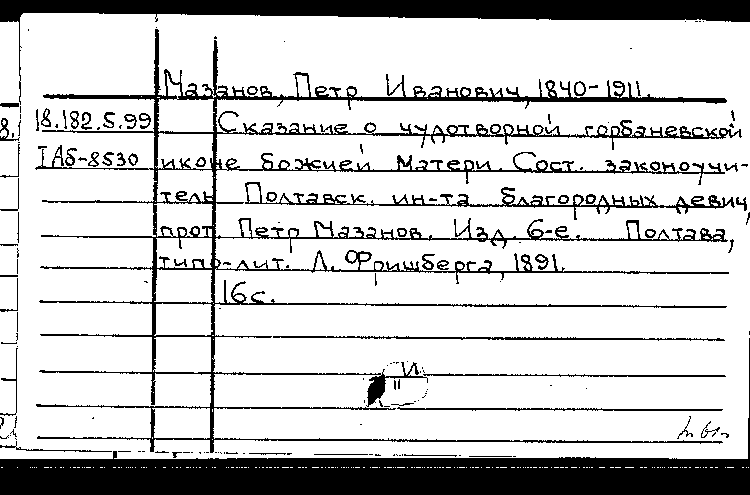 Мазанов, Петр Иванович, 1840-1911.
18.182.5.99 Сказание о чудотворной горбаневской
IАб-8530 иконе божией матери. Сост. законоучи-
тель Полтавск. ин-та благородных девиц,
прот. Петр Мазанов. Изд. 6-е. Полтава,
типо-лит. Л. Фришберга, 1891.
16 с.
И
"